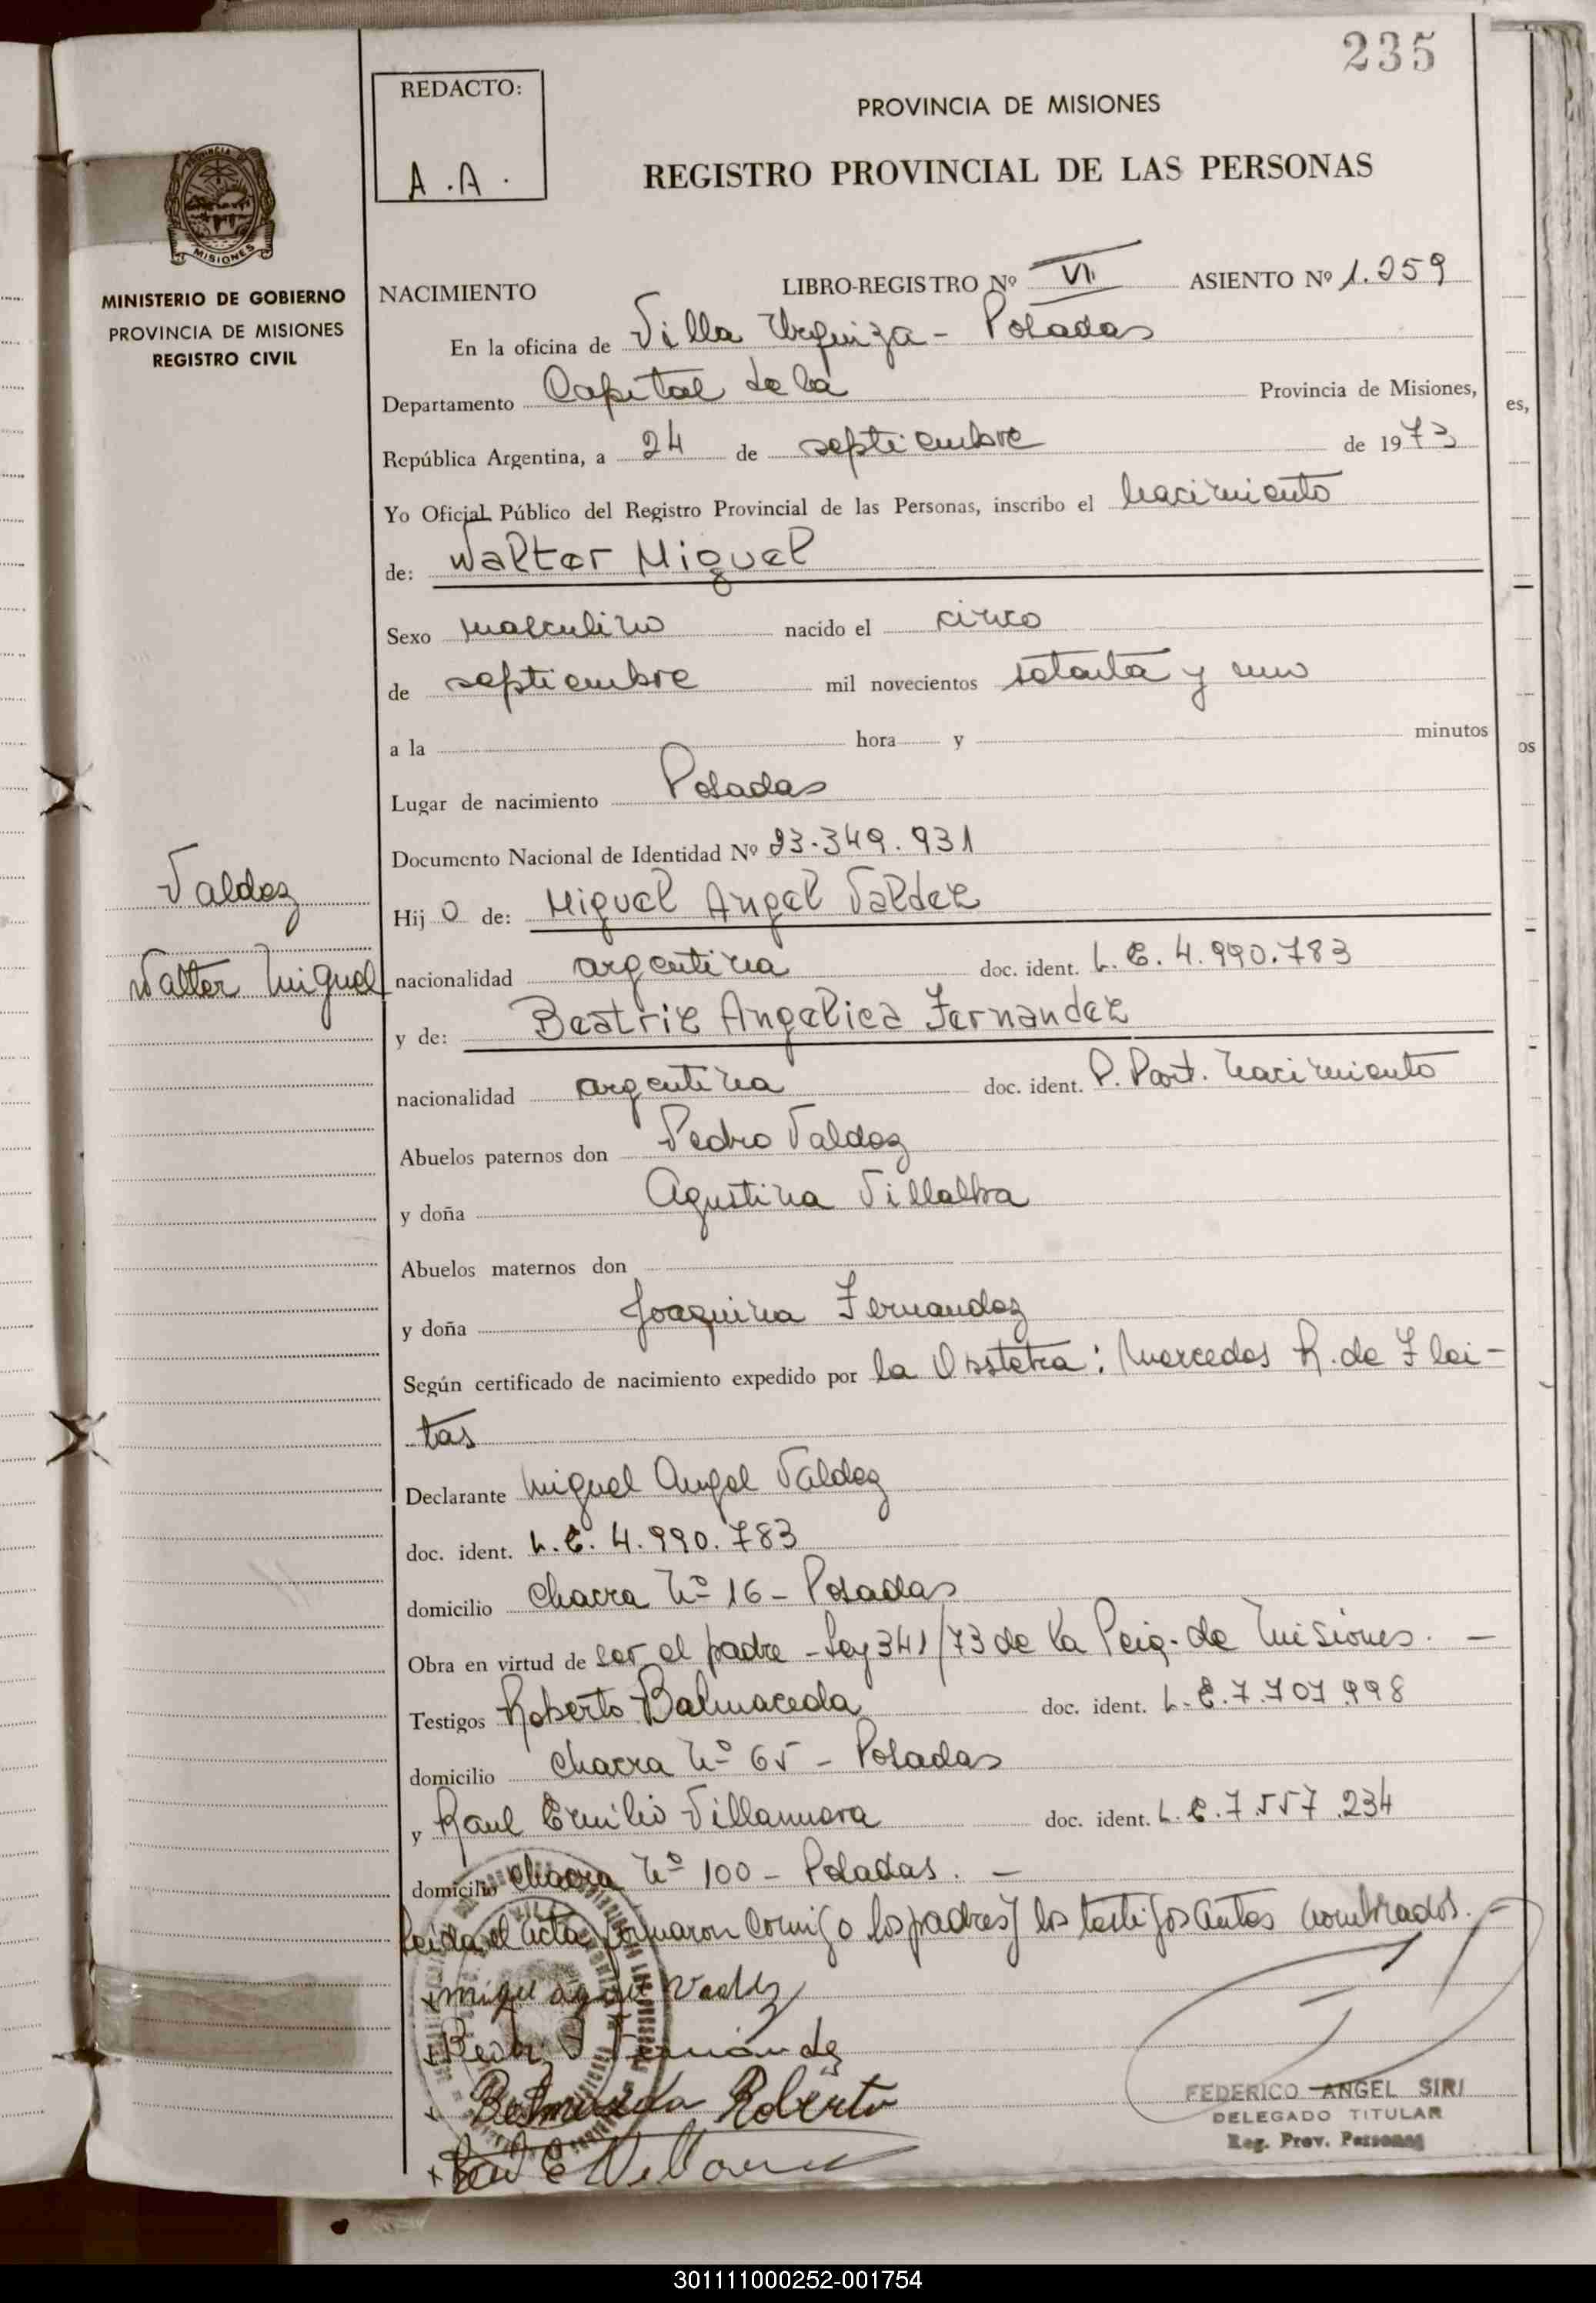 235
REDACTO:
A.A.
PROVINCIA DE MISIONES
REGISTRO PROVINCIAL DE LAS PERSONAS
MISIONES
MINISTERIO DE GOBIERNO
PROVINCIA DE MISIONES
REGISTRO CIVIL
NACIMIENTO LIBRO-REGISTRO Nº VI ASIENTO Nº 1.259
En la oficina de Villa Urquiza - Posadas
Departamento Capital de la Provincia de Misiones,
República Argentina, a 24 de septiembre de 1973
Yo Oficial Público del Registro Provincial de las Personas, inscribo el nacimiento
de: Walter Miguel
Sexo masculino nacido el cinco
de septiembre mil novecientos setenta y uno
a la hora y minutos
Lugar de nacimiento Posadas
Documento Nacional de Identidad Nº 23.349.931
Valdez
Walter Miguel
Hij o de: Miguel Angel Valdez
nacionalidad argentina doc. ident. L.E. 4.990.783
y de: Beatriz Angelica Fernandez
nacionalidad argentina doc. ident. P. Part. nacimiento
Abuelos paternos don Pedro Valdez
y doña Agustina Villalba
Abuelos maternos don
y doña Joaquina Fernandez
Según certificado de nacimiento expedido por la Obstetra: Mercedes R. de Flei-
tas
Declarante Miguel Angel Valdez
doc. ident. L.E. 4.990.783
domicilio Chacra Nº 16 - Posadas
Obra en virtud de ser el padre - Ley 341/73 de la de Misiones. -
Testigos Roberto Balmaceda doc. ident. L.E. 7.707.998
domicilio Chacra Nº 65 - Posadas
y Raul Emilio Villanueva doc. ident. L.E. 7.557.234
domicilio Chacra Nº 100 - Posadas. -
Leida el acta, firmaron conmigo los padres y los testigos antes nombrados. -
Fernández
Roberto
FEDERICO ANGEL SIRI
DELEGADO TITULAR
Reg. Prov. Personas
es,
os
301111000252-001754